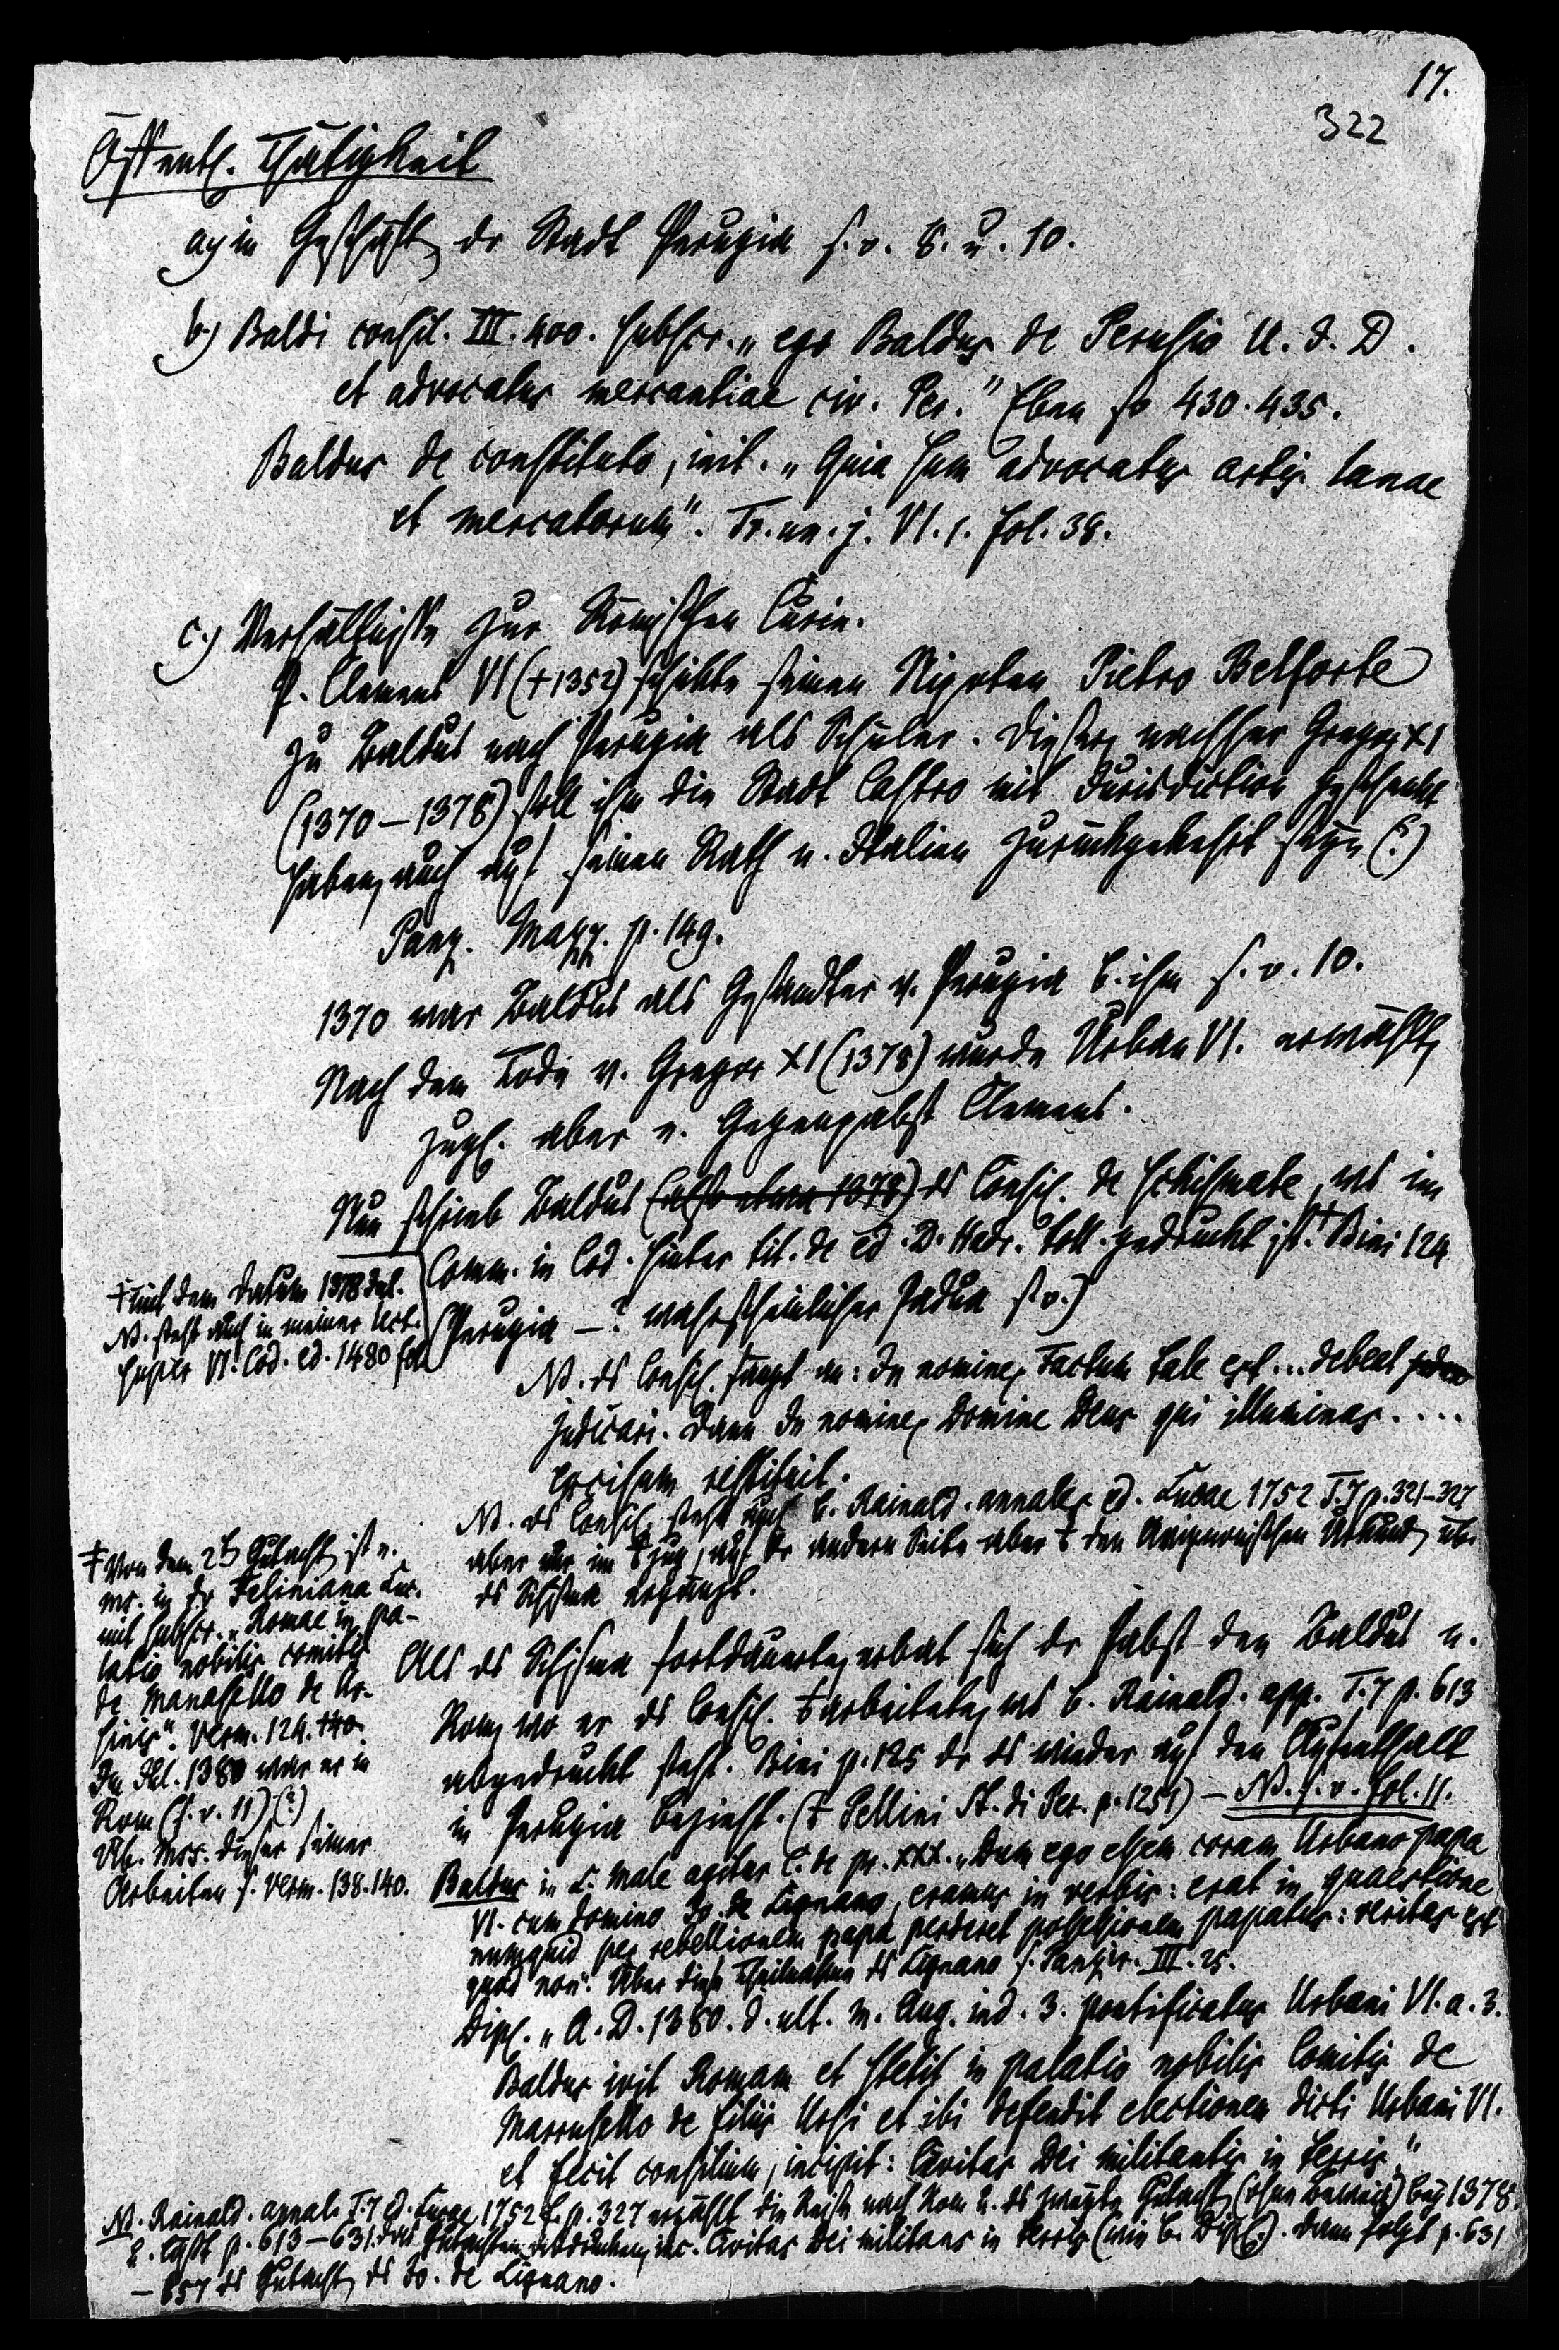 17.
322
Öffentl. Thätigkeit
a) in Geschäften der Stadt Perugia s. o. 8. u. 10.
b) Baldi consil. III. 400. subscr. „ego Baldus de Perusio U. J. D.
et advocatus mercantiae civ. Per." Eben so 430. 435.
Baldus de constituto, init. „Quia sum advocatus artis lanae
et mercatorum". Tr. un. j. VI. 1. fol. 38.
c.) Verhältnisse zur Römischen Curie.
P. Clemens VI (+1352) schickte seinen Nepoten Pietro Belforte
zu Baldus nach Perugia als Schüler. Dieser, nachher Gregor XI
(1370–1378) soll ihm die Stadt Castro mit Jurisdiction geschenkt
haben, auch auf seinen Rath n. Italien zurückgekehrt seyn (?)
Panz. Mazz. p. 149.
1370 war Baldus als Gesandter v. Perugia b. ihm s. o. 10.
Nach dem Tode v. Gregor XI (1378) wurde Urban VI. erwählt,
zugl. aber e. Gegenpabst Clemens.
Nun schrieb Baldus (also etwa 1378) ds Consil. de schismate, ws im
Comm. in Cod. hinter tit. de ed. D. Hadr. toll. gedruckt ist. + Bini 124
Perugia –? wahrscheinlicher Padua s. o.)
+ mit dem Datum 1378 Jul.
NB. steht auch in meiner Lect.
super VI. Cod. ed. 1480 fol.
NB. ds Consil. fängt an: In nomine, Factum tale est... debeat
judicari. Dann In nomine, Domine Deus qui illuminas....
restituit.
NB. ds Consil. steht auch b. Rainald. annales ed. Lucae 1752 T. 7 p. 321–327
aber nur im Auszug, auf der andern Seite aber den Urkunden über
ds Schisma ergänzt.
Als ds Schisma fortdauerte, erbat sich der Pabst den Baldus n.
Rom, wo er ds Consil. + arbeitete, ws b. Rainald. app. T. 7 p. 613
abgedruckt steht. Bini p. 125 der es wieder auf den Aufenthalt
in Perugia bezieht. (+ Pellini St. di Per. p. 1251) – NB. s. o. fol. 11.
+ Von dem 2ten Gutachten ist e.
ms. in der Feliniana Luc.
mit subscr. „Romae in pa-
latio nobilis comitis
de Manasello de Ur-
sinis". Verm. 124. 140.
Im Jul. 1380 war er in
Rom (s. o. 11) (?)
Üb. Mss. dieser seiner
Arbeiten s. Verm. 138. 140.
Baldus in L. male agitur C. de pr. XXX. „Dum ego essem coram Urbano papa
VI. cum domino Jo. de Lignano, eramus in verbis: erat in quaestione
numquid per rebellionem papa perderet possessionem papatus: veritas est
quod non". Über diese Theilnahme ds Lignano s. Panzir. III. 25.
Dipl. „A. D. 1380. d. ult. m. Aug. ind. 3. pontificatus Urbani VI. a. 3.
Baldus ivit Romam et stetit in palatio nobilis Comitis de
Marrusello de filiis Ursi et ibi defendit electionem dicti Urbani VI.
et fecit consilium, incipit: Civitas Dei militantis in terris".
NB. Rainald. annal. T. 7 ed. Lucae 1752 f. p. 327 erzählt die Reise nach Rom u. ds zweyte Gutachten (ohne Beweis) bey 1378.
u. läßt p. 613–631 das Gutachten abdrucken, inc. Civitas Dei militans in terris (wie b. Dipl.). Dann folgt p. 631
–657 ds Gutachten ds Jo. de Lignano.